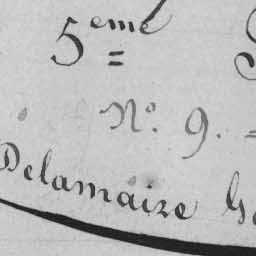 5eme
No. 9.
Delamaize